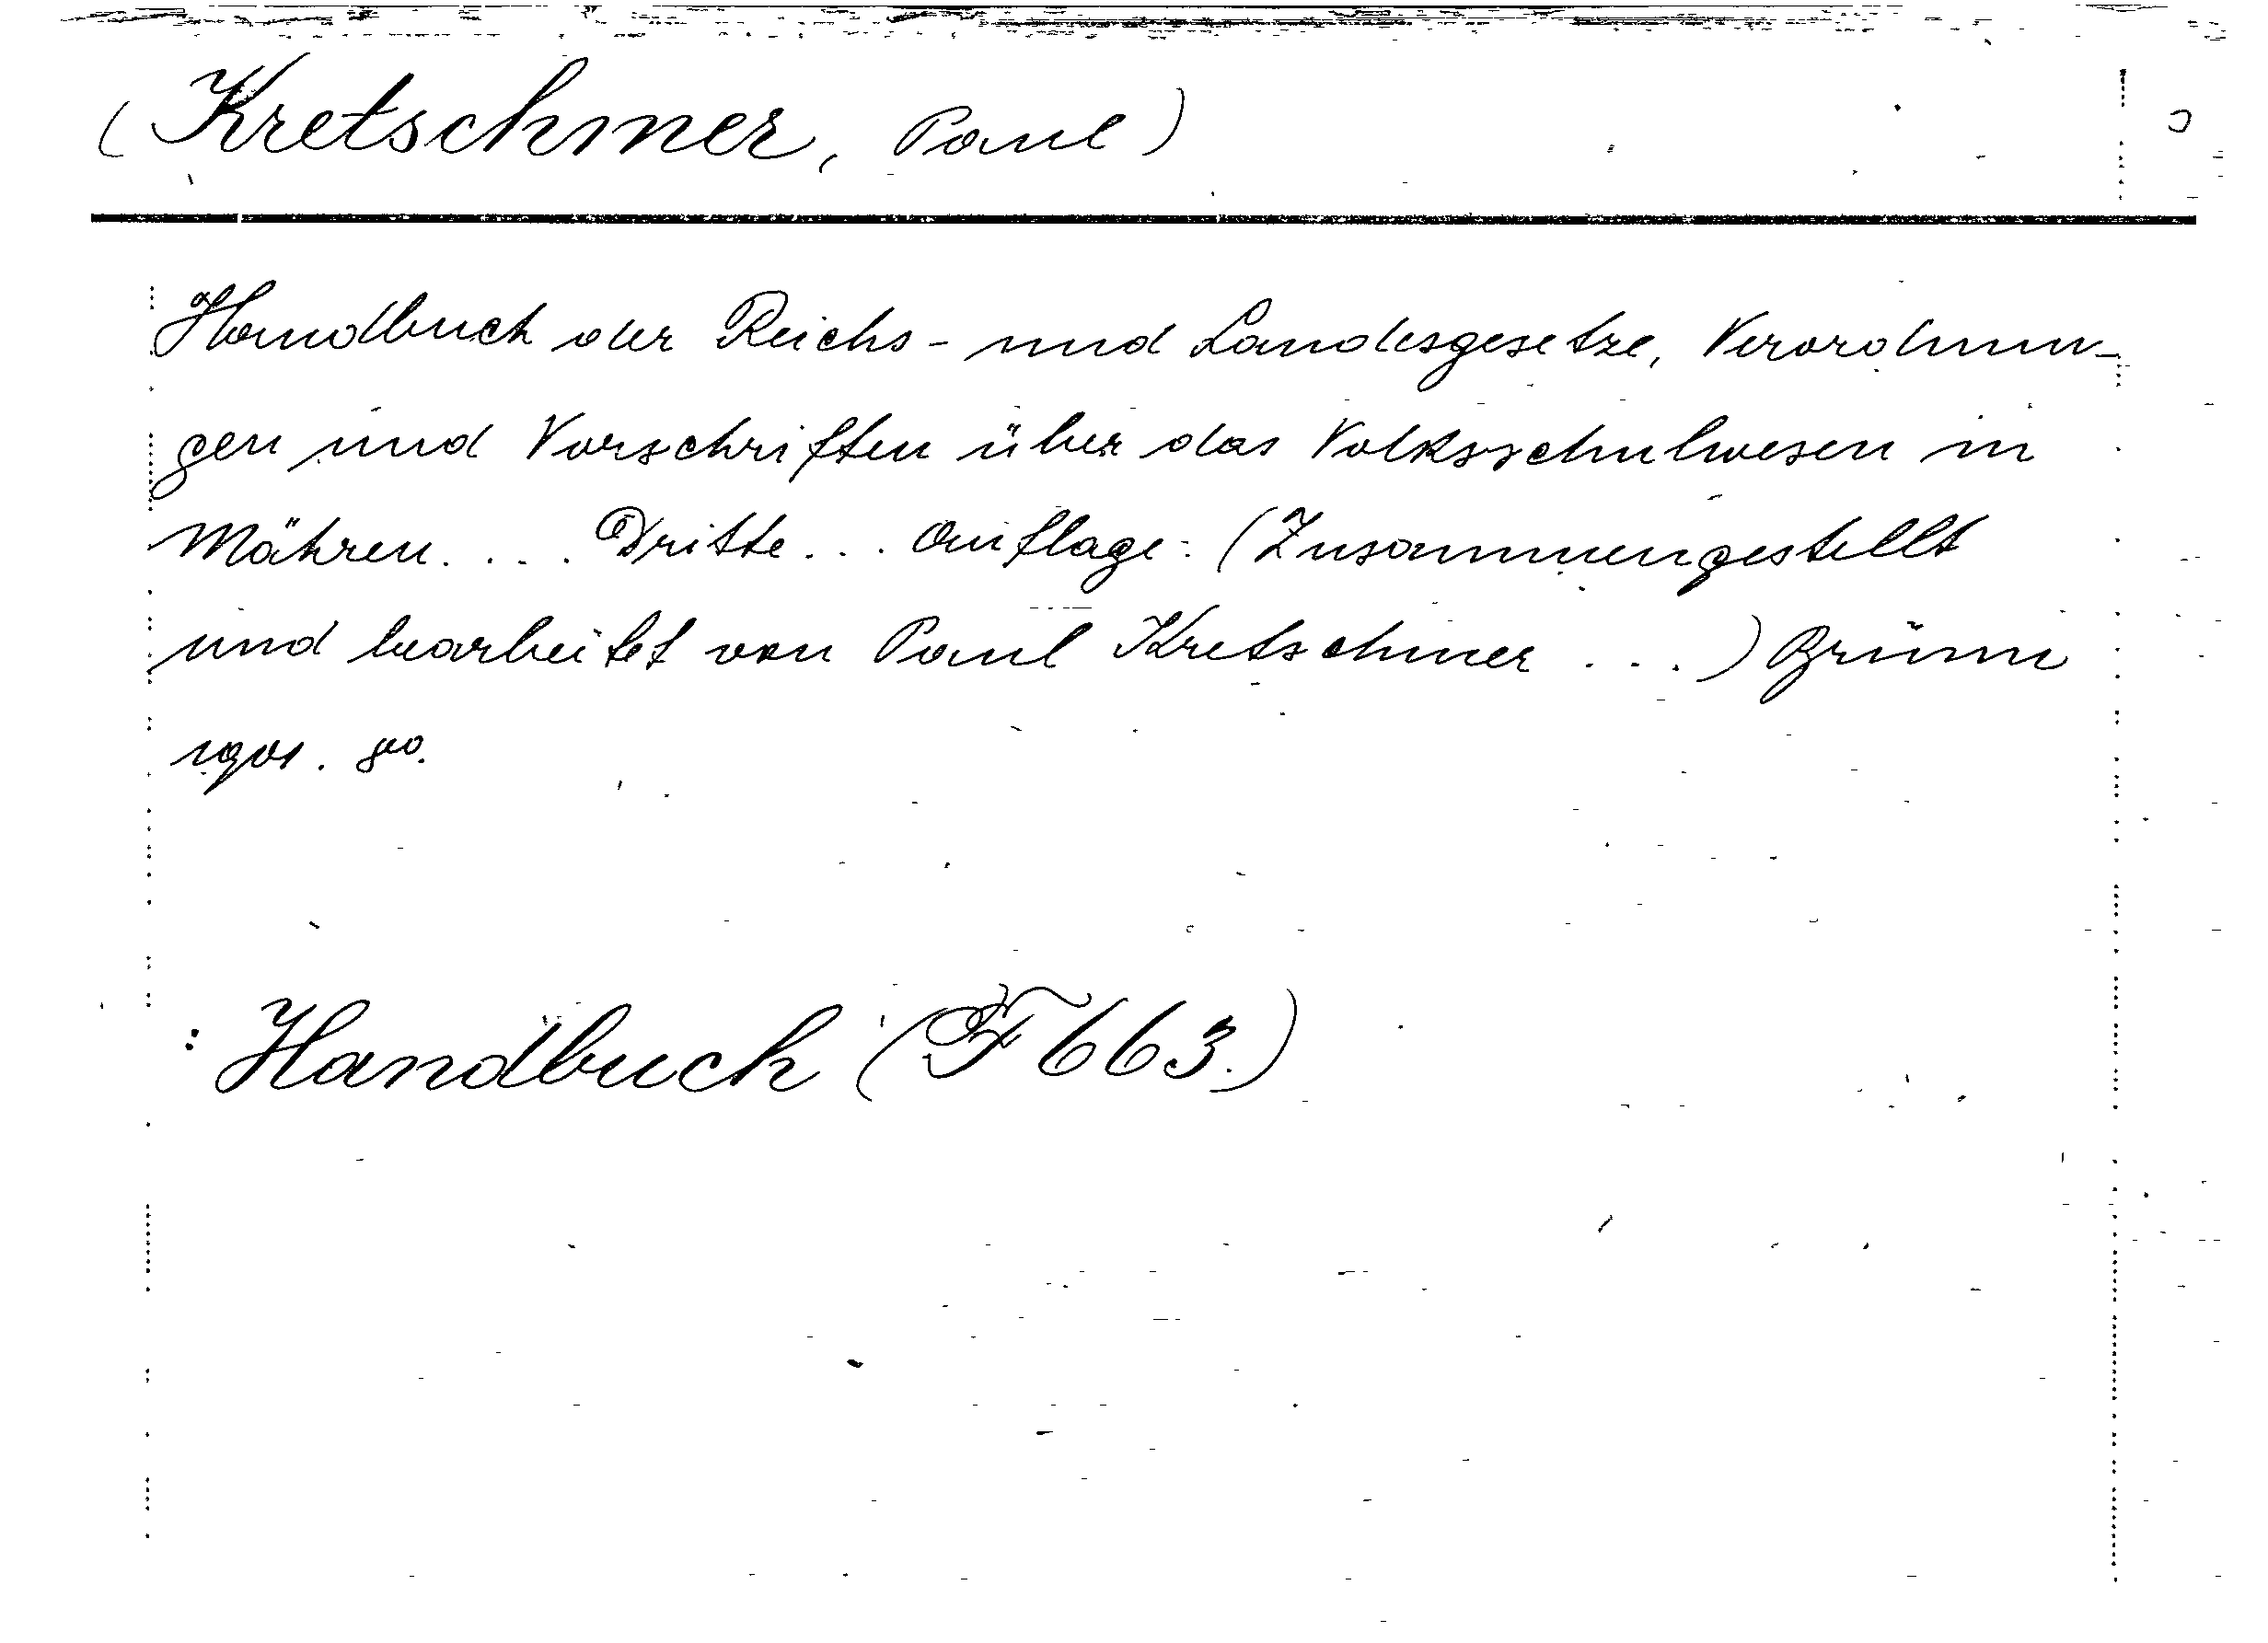 (Kretschmer, Paul)
Handbuch der Reichs- und Landesgesetze, Verordnun-
gen und Vorschriften über das Volksschulwesen in
Mähren. ... Dritte... Auflage. (Zusammengestellt
und bearbeitet von Paul Kretschmer ...) Brünn
1901. 8o.
: Handbuch (F 663.)